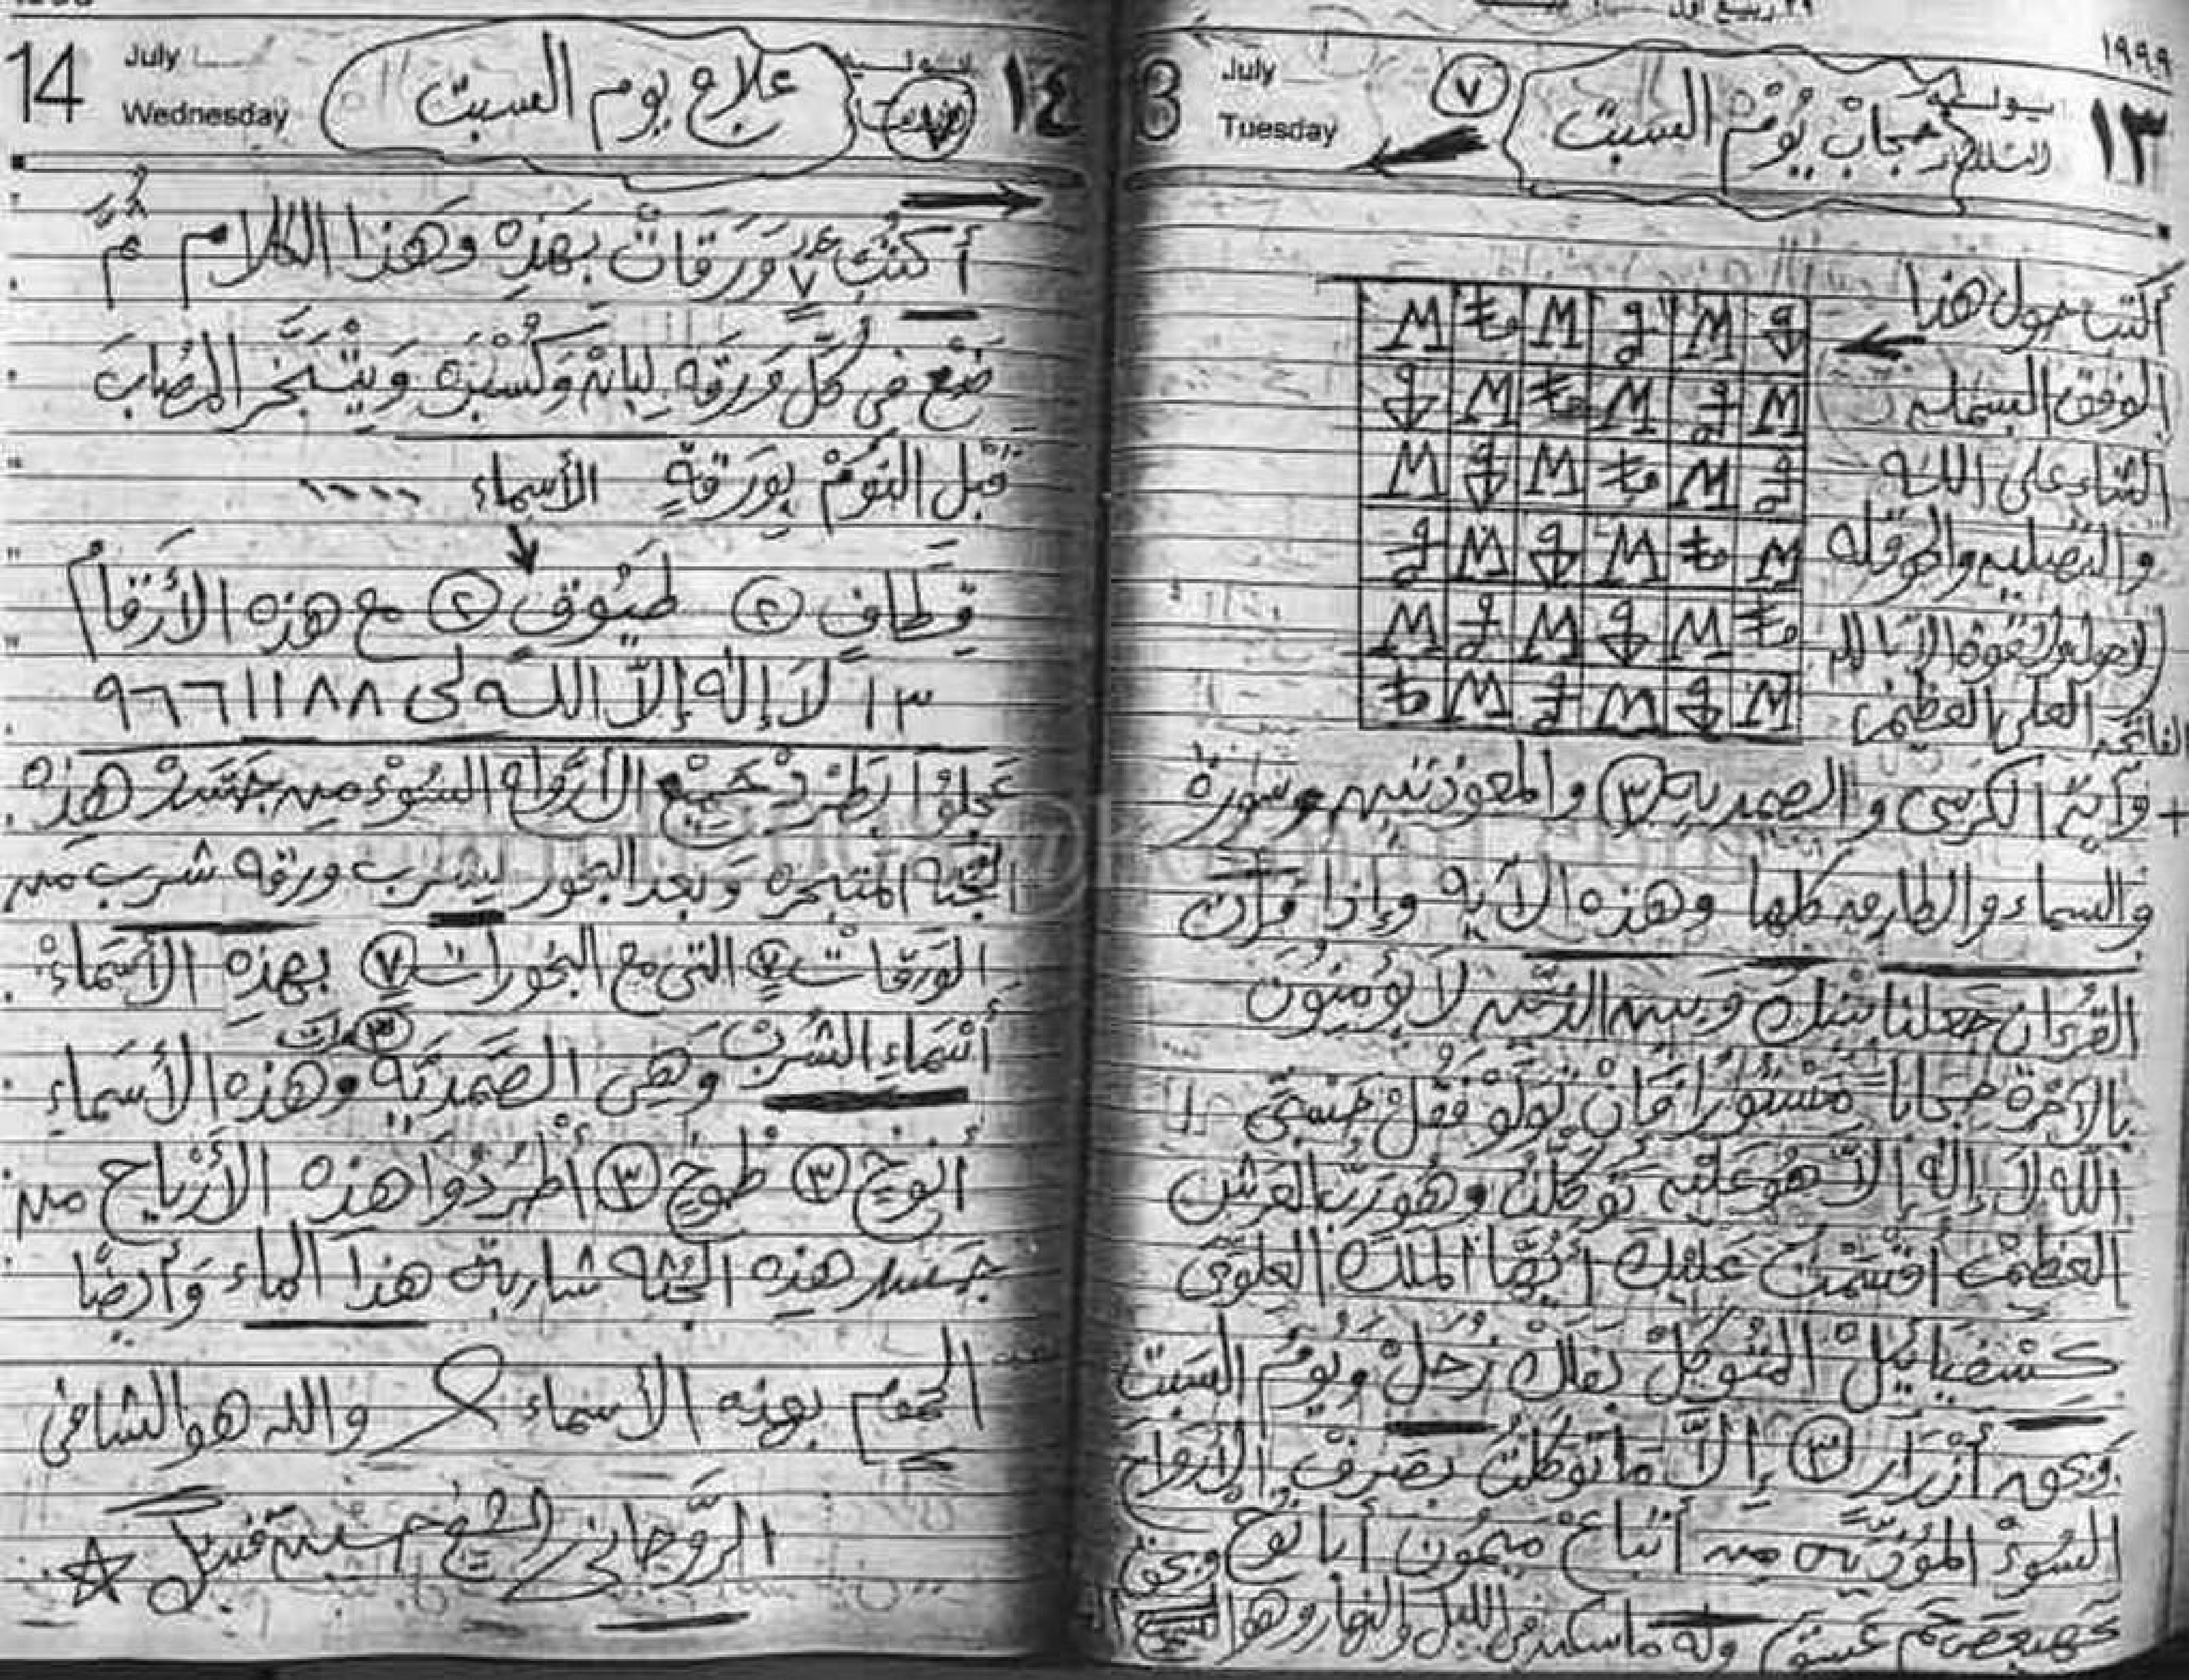 ١٩٩٩
١٣ يوليه July
الثلاثاء Tuesday
حجاب يوم السبت ٧
أكتب حول هذا
الوفق البسمله
الثناء على الله
والتصليه والحوقله
لاحول ولا قوة إلا بالله
العلى العظيم
الفاتحه
+ وآية الكرسى والصمديه ٣ والمعوذتين وسورة
والسماء والطارق كلها وهذه الآية وإذا قرأت
القرءان جعلنا بينك وبين الذين لا يؤمنون
بالآخرة حجاباً مستوراً فإن تولو فقل حسبى
الله لا إله إلا هو عليه توكلت وهو رب العرش
العظيم أقسمت عليك أيها الملك العلوى
كسفيائيل المتوكل بفلك زحل ويوم السبت
وبحق أزرار ٣ إلا ما توكلت بصرف الأرواح
السوء المؤذية من أتباع ميمون أبا نوخ وبحق
كهيعص حم عسق وله ماسكن فى الليل والنهار وهو السميع
14 July ١٤
Wednesday
علاج يوم السبت
أكتب ٧ ورقات بهذه وهذا الكلام ثم
ضع فى كل ورقه لبانه وكسبره ويتبخر المصاب
قبل النوم بورقةٍ الأسماء
قطاف ٢ طيوق ٢ مع هذه الأرقام
١٣ لا إله إلا الله لى ٩٦٦١١٨٨
عجلوا بطرد جميع الأرواح السوء من جسد هذه
الجثه المتبخره وبعد البخور ليشرب ورقه شرب من
الورقات ٧ التى مع البخورات ٧ بهذه الأسماء
أسماء الشرب وهى الصمدية ٣ مرات وهذه الأسماء
أنوخ ٣ طوخ ٣ أطردوا هذه الأرياح من
جسد هذه الجثه شاربة هذا الماء وأيضا
بهذه الأسماء والله هو الشافى
الروحانى الشيخ